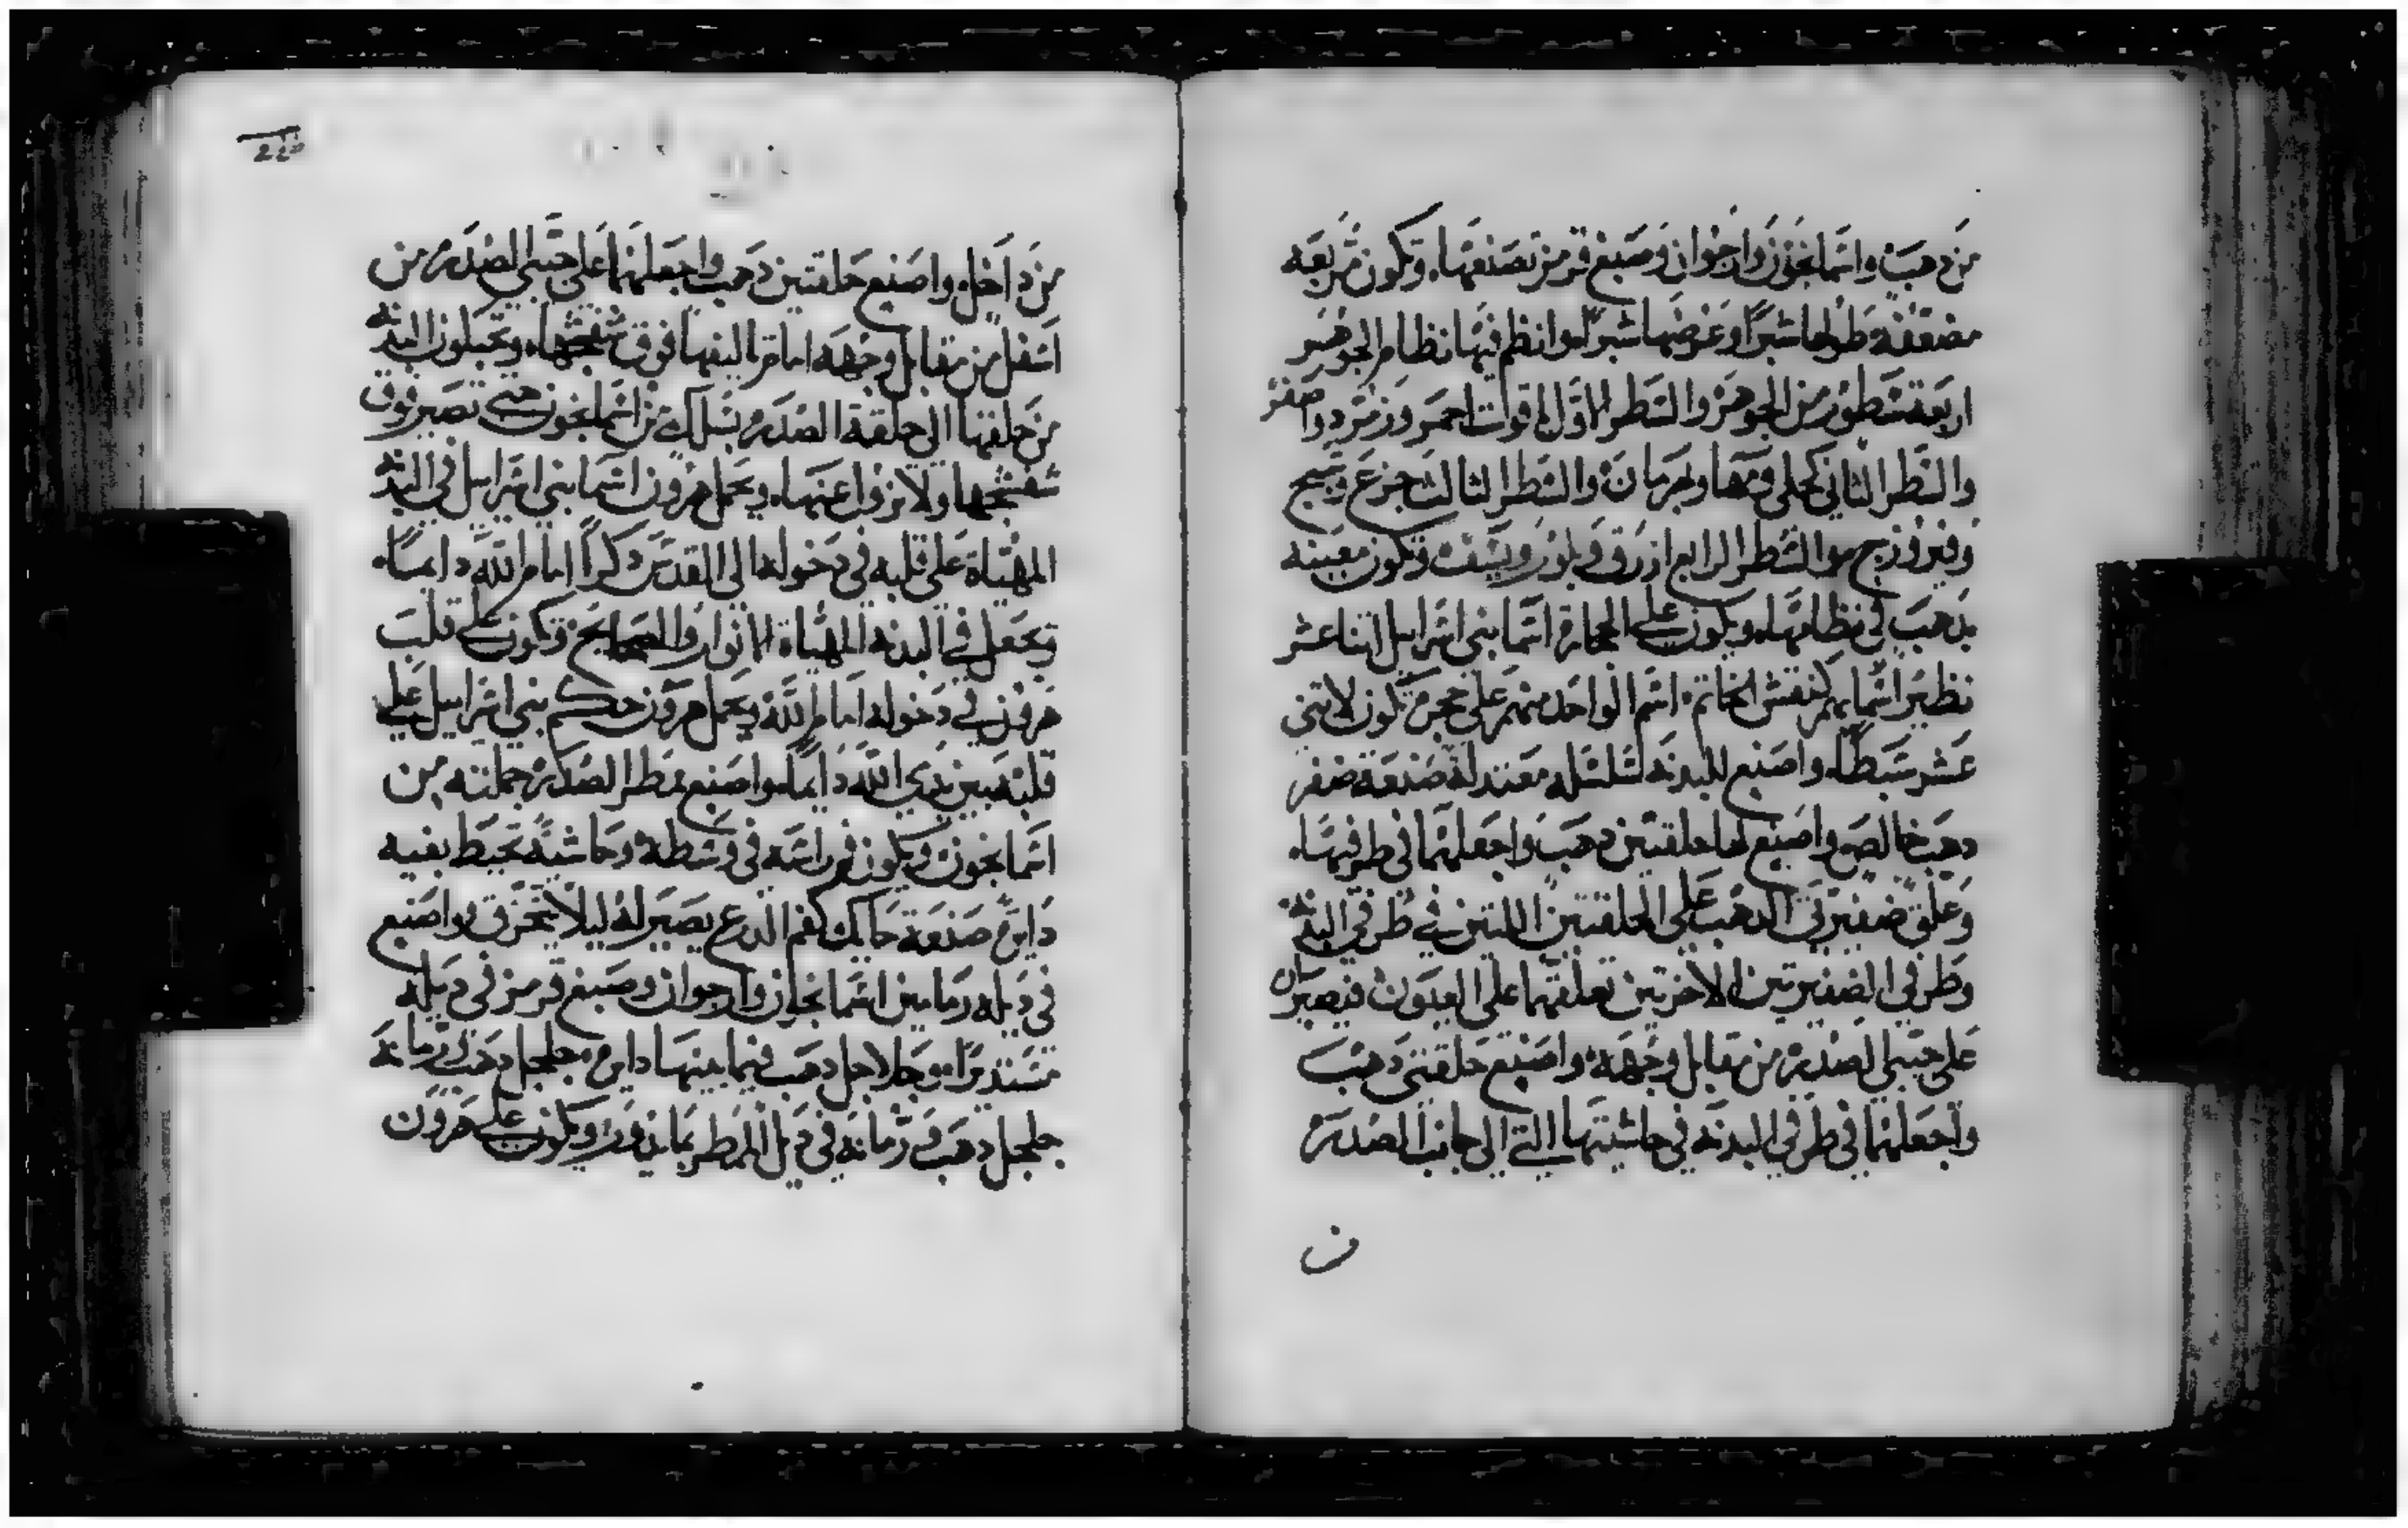 من ذهب واسمانجون وارجوان وصبغ قرمز تصنعها، وتكون مربعه
مضعفه طولها شبرًا وعرضها شبرًا، وانظم فيها نظام الجوهر
اربعة سطور من الجوهر والسطر الاول ياقوت احمر وزمرد واصفر
والسطر الثاني كحلي ومها وبهرمان والسطر الثالث جزع وسبج
وفيروزج، والسطر الرابع ازرق وبلور ويشف وتكون معينه
بذهب في نظامها، ويكون على الحجارة اسما بني اسراييل اثنا عشر
نظير اسمايهم كنقش الخاتم، اسم الواحد منهم على حجر تكون لاثني
عشر سبطًا، واصنع للبدنه سلسله معتدلة صنعة ضفر
ذهب خالص، واصنع لها حلقتين ذهب واجعلهما في طرفيها،
وعلق ضفيرتي الذهب على الحلقتين اللتين في طرفي البدنه
وطرفي الضفيرتين الاخرتين تعلقهما على العيون فيصيران
على جيبي الصدره من مقابل وجهه، واصنع حلقتي ذهب
واجعلهما في طرفي البدنه في حاشيتها التي الى جانب الصدره
ن
من داخل، واصنع حلقتين ذهب واجعلهما على جيبي الصدره من
اسفل من مقابل وجهه امام تاليفها فوق شفشجها، ويحبلون البدنه
من حلقتها الى حلقة الصدره بسلك من اسمانجون حتى تصير فوق
شفشجها ولا تزول عنها، ويحمل هرون اسما بني اسراييل في البدنه
المهياة على قلبه في دخوله الى القدس ذكرًا امام الله دايمًا،
وتجعل في البدنه المهياة الانوار والصحايح وتكون على قلب
هرون في دخوله امام الله ويحمل هرون حكم بني اسراييل على
قلبه بين يدي الله دايمًا، واصنع ممطر الصدره جملته من
اسمانجون ويكون فم راسه في وسطه وحاشية تحيط بفيه
دايره صنعة حايك كفم الدرع يصير له ليلا يتخرق، واصنع
في ذيله رمامين اسمانجون وارجوان وصبغ قرمز في ذيله
مستديرًا، وجلاجل ذهب فيما بينها دايره، جلجل ذهب ورمانه
جلجل ذهب ورمانه في ذيل الممطر بما يدور، ويكون على هرون